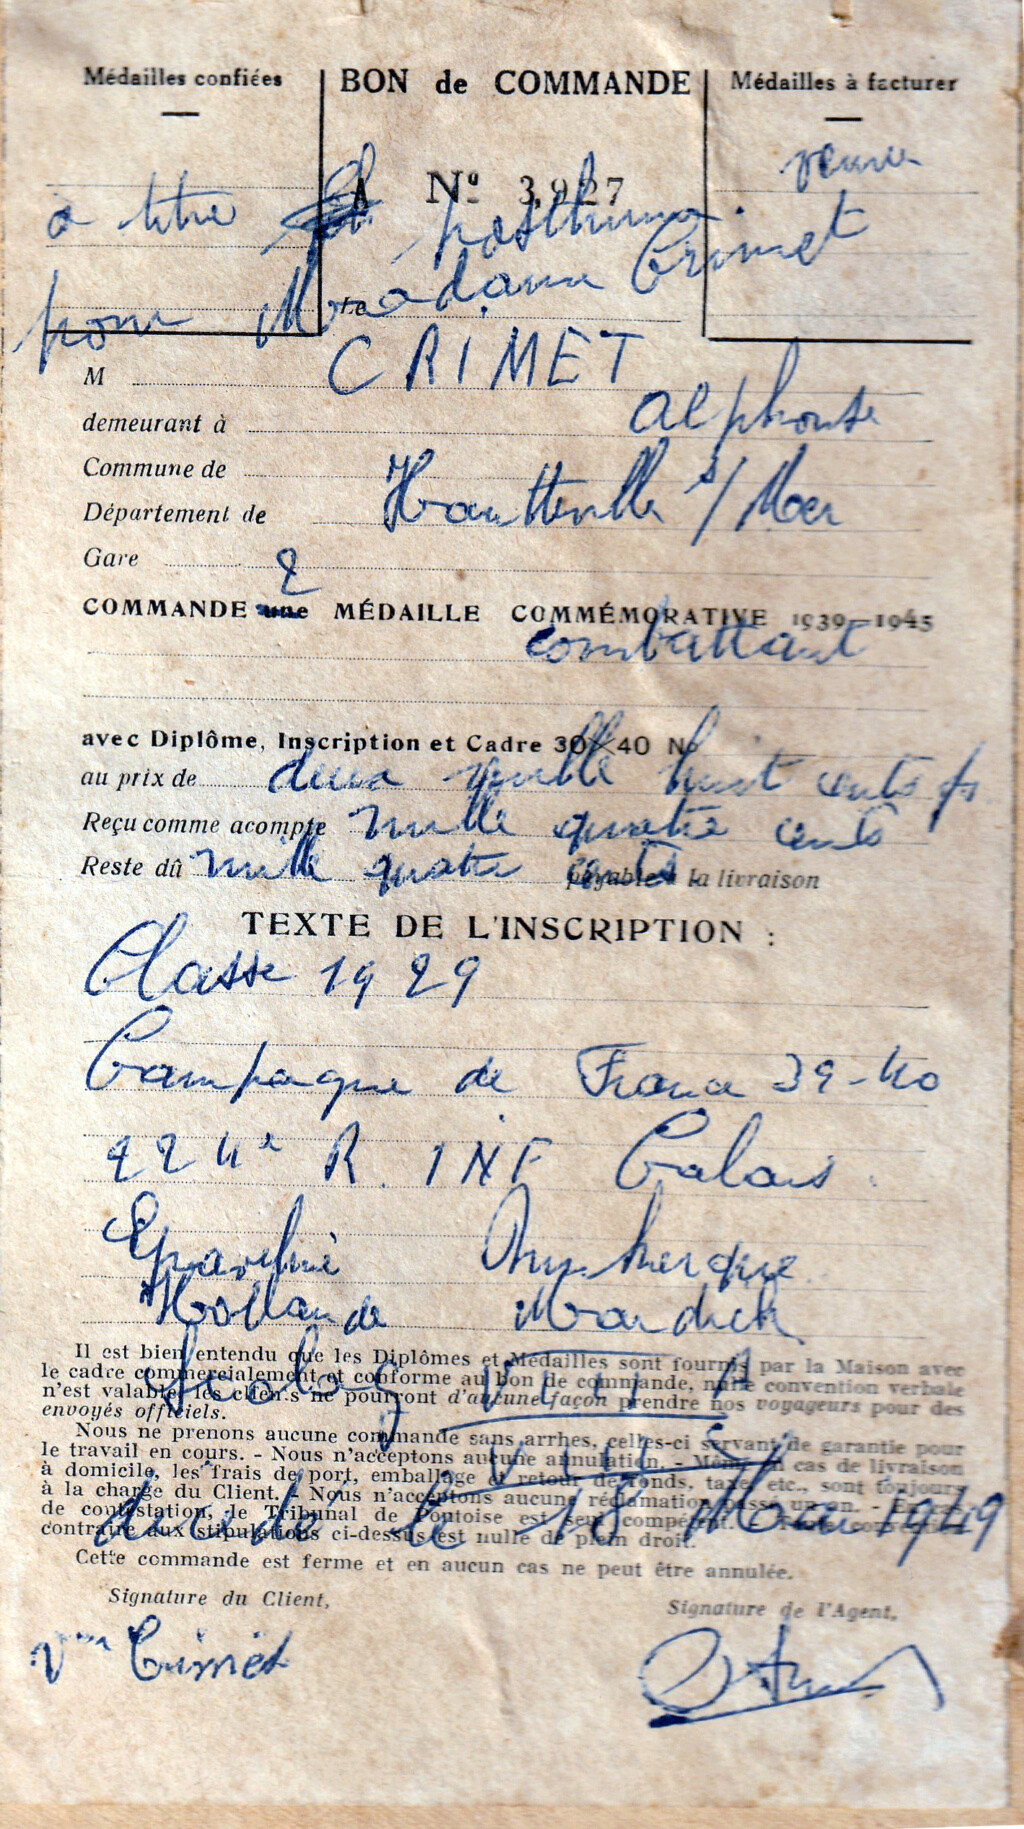 Médailles confiées
BON de COMMANDE
Médailles à facturer
A Nº 3.927
veuve
à titre posthume.
pour Madame Crimet
Le
M CRIMET
demeurant à Alphonse
Commune de
Département de Hautteville s/ Mer
Gare
2
COMMANDE une MÉDAILLE COMMÉMORATIVE 1939-1945
combattant
avec Diplôme, Inscription et Cadre 30 X 40 No
au prix de deux mille huit cents fs
Reçu comme acompte mille quatre cents
Reste dû mille quatre cents payables à la livraison
TEXTE DE L'INSCRIPTION :
Classe 1929
Campagne de France 39-40
224e R. INF Calais.
Dunkerque
Hollande Mardick
Il est bien entendu que les Diplômes et Médailles sont fournis par la Maison avec
le cadre commercialement et conforme au bon de commande, nulle convention verbale
n'est valable, les clients ne pourront d'aucune façon prendre nos voyageurs pour des
envoyés officiels.
Stalag
Nous ne prenons aucune commande sans arrhes, celles-ci servant de garantie pour
le travail en cours. - Nous n'acceptons aucune annulation. - Même en cas de livraison
à domicile, les frais de port, emballage et retour de fonds, taxe, etc., sont toujours
à la charge du Client. - Nous n'acceptons aucune réclamation passé un an. - En cas
de contestation, le Tribunal de Pontoise est seul compétent. - Toute convention
contraire aux stipulations ci-dessus est nulle de plein droit.
décédé le 18 Mai 1949
Cette commande est ferme et en aucun cas ne peut être annulée.
Signature du Client,
Signature de l'Agent,
Vve Crimet